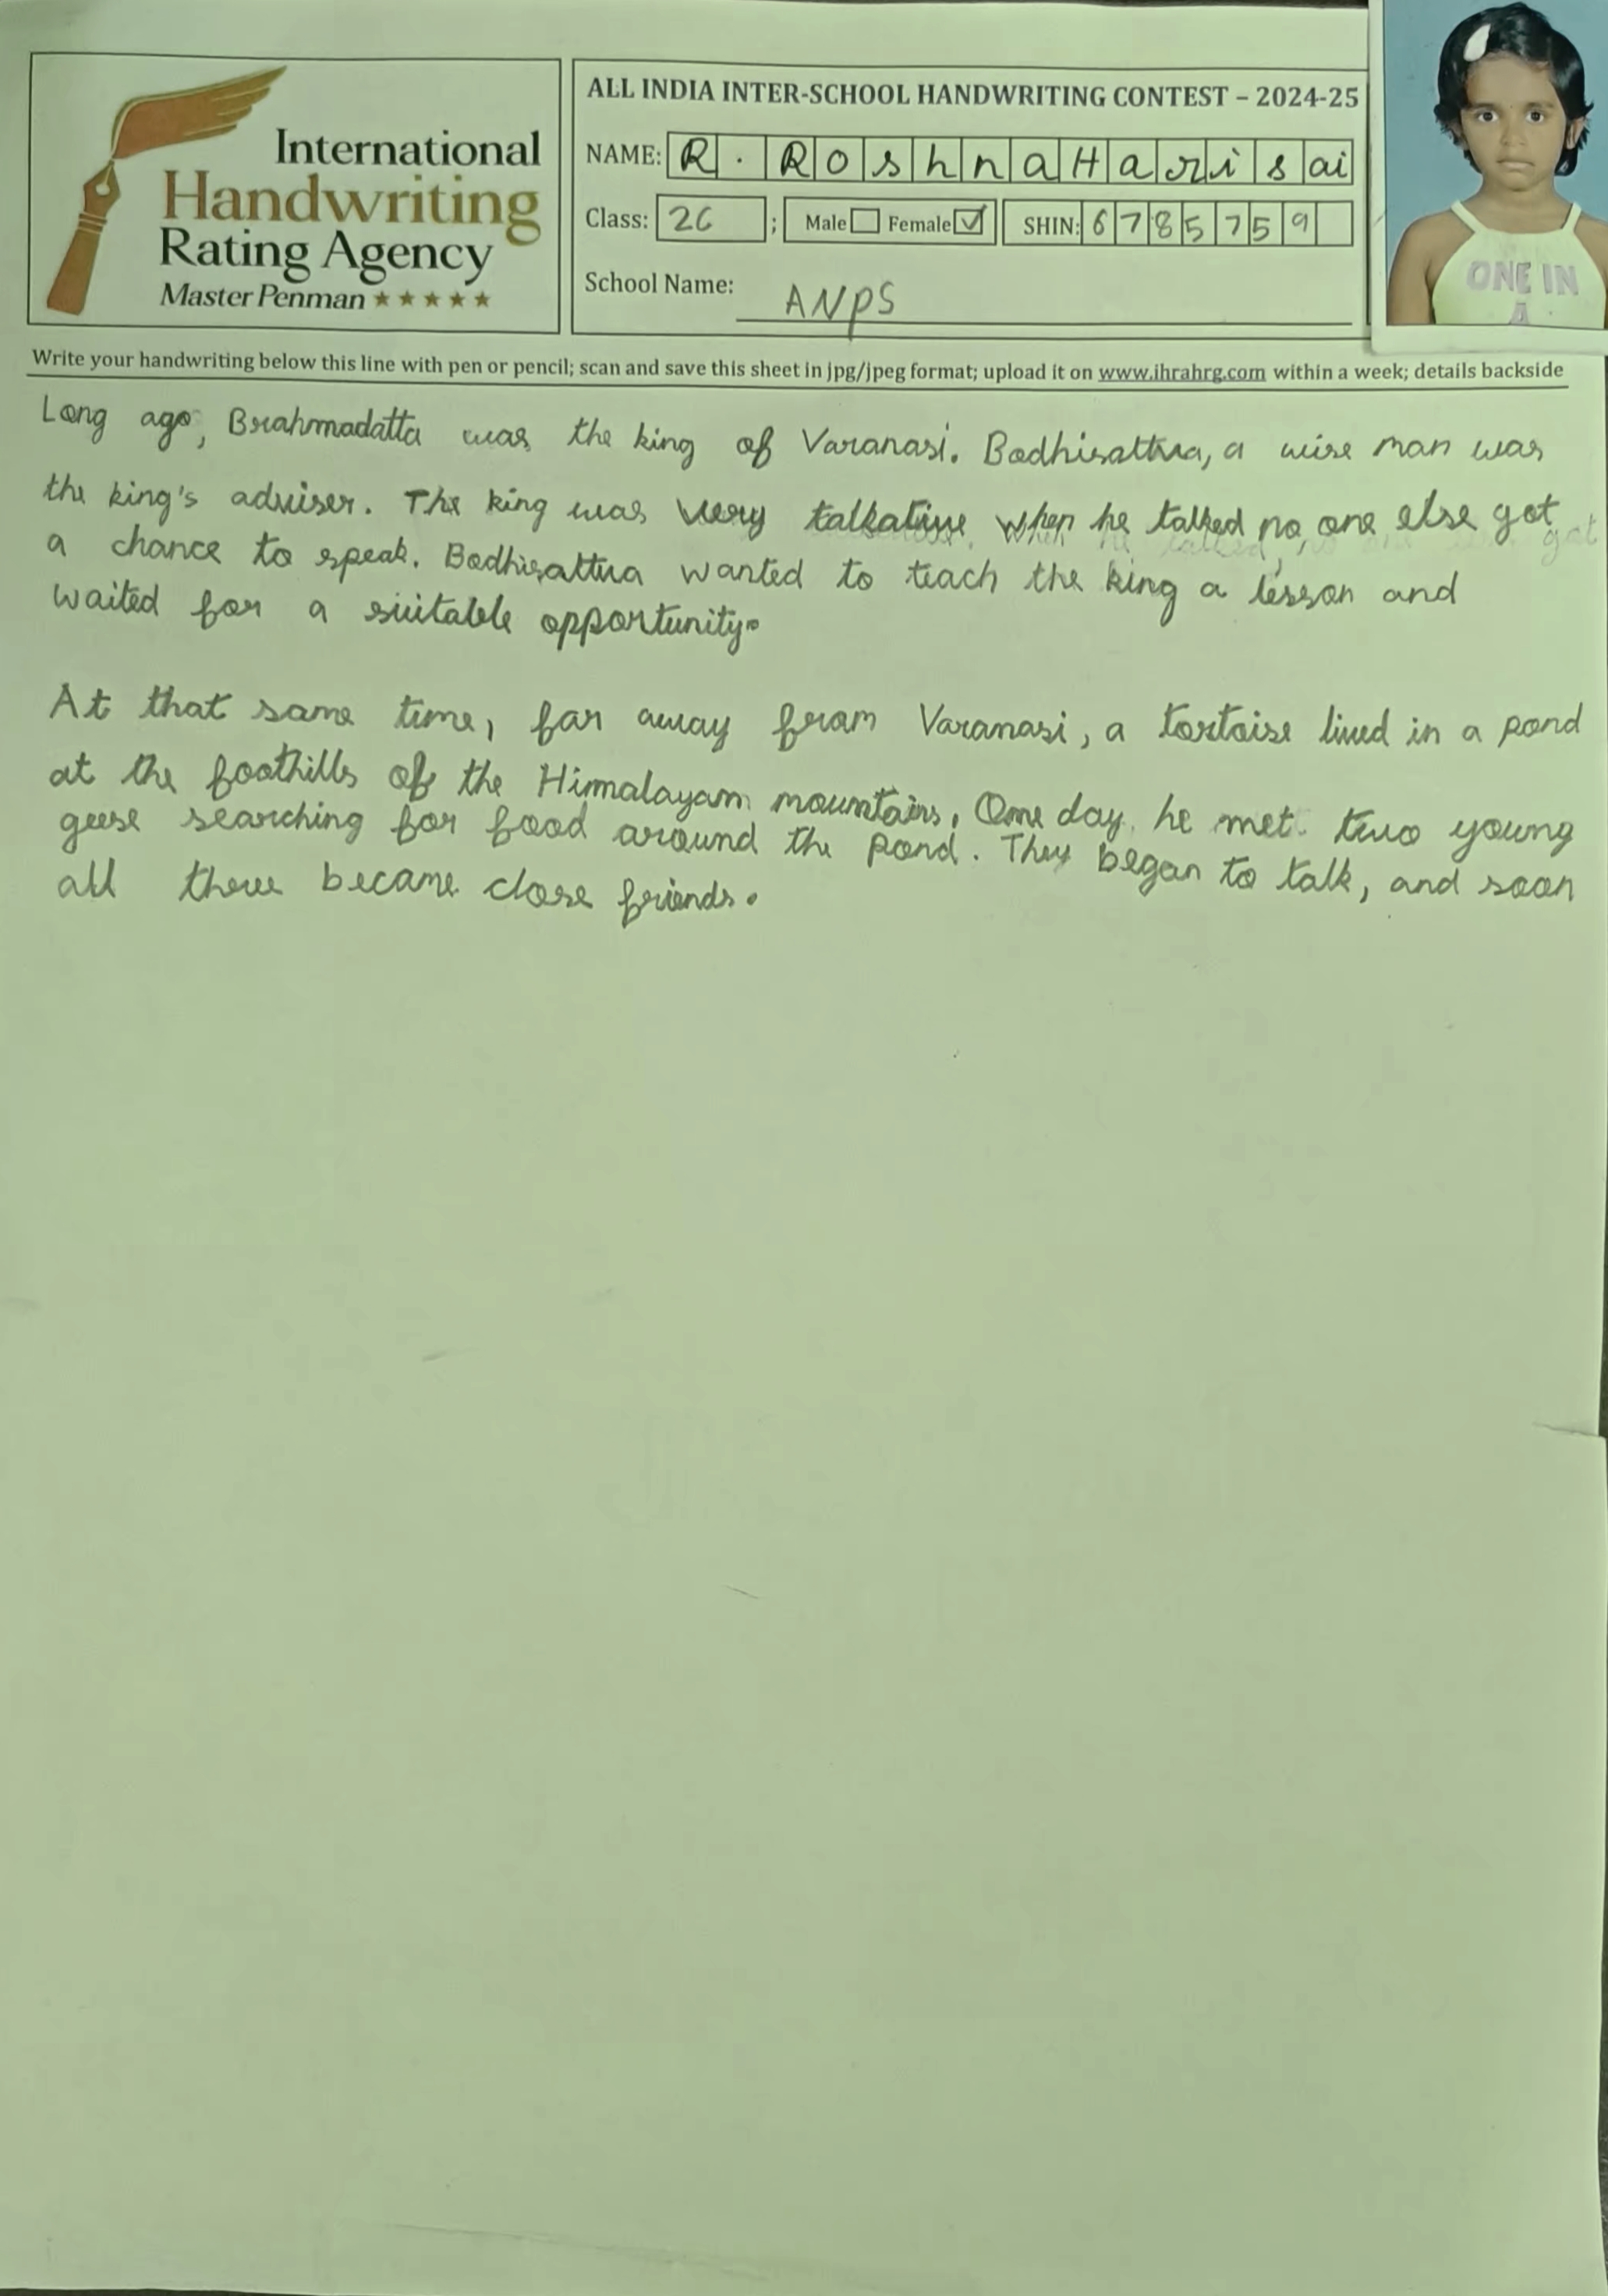 International
Handwriting
Rating Agency
Master Penman ★★★★★
ALL INDIA INTER-SCHOOL HANDWRITING CONTEST – 2024-25
NAME: R. RoshnaHarisai
Class: 2C ; Male Female ✓ SHIN: 6785759
School Name: ANPS
ONE IN
A
Write your handwriting below this line with pen or pencil; scan and save this sheet in jpg/jpeg format; upload it on www.ihrahrg.com within a week; details backside
Long ago, Brahmadatta was the king of Varanasi. Bodhisattva, a wise man was
the king's adviser. The king was very talkative when he talked no, one else got
a chance to speak. Bodhisattva wanted to teach the king a lesson and
waited for a suitable opportunity.
At that same time, far away from Varanasi, a tortoise lived in a pond
at the foothills of the Himalayam mountains. One day he met two young
geese searching for food around the pond. They began to talk, and soon
all three became close friends.